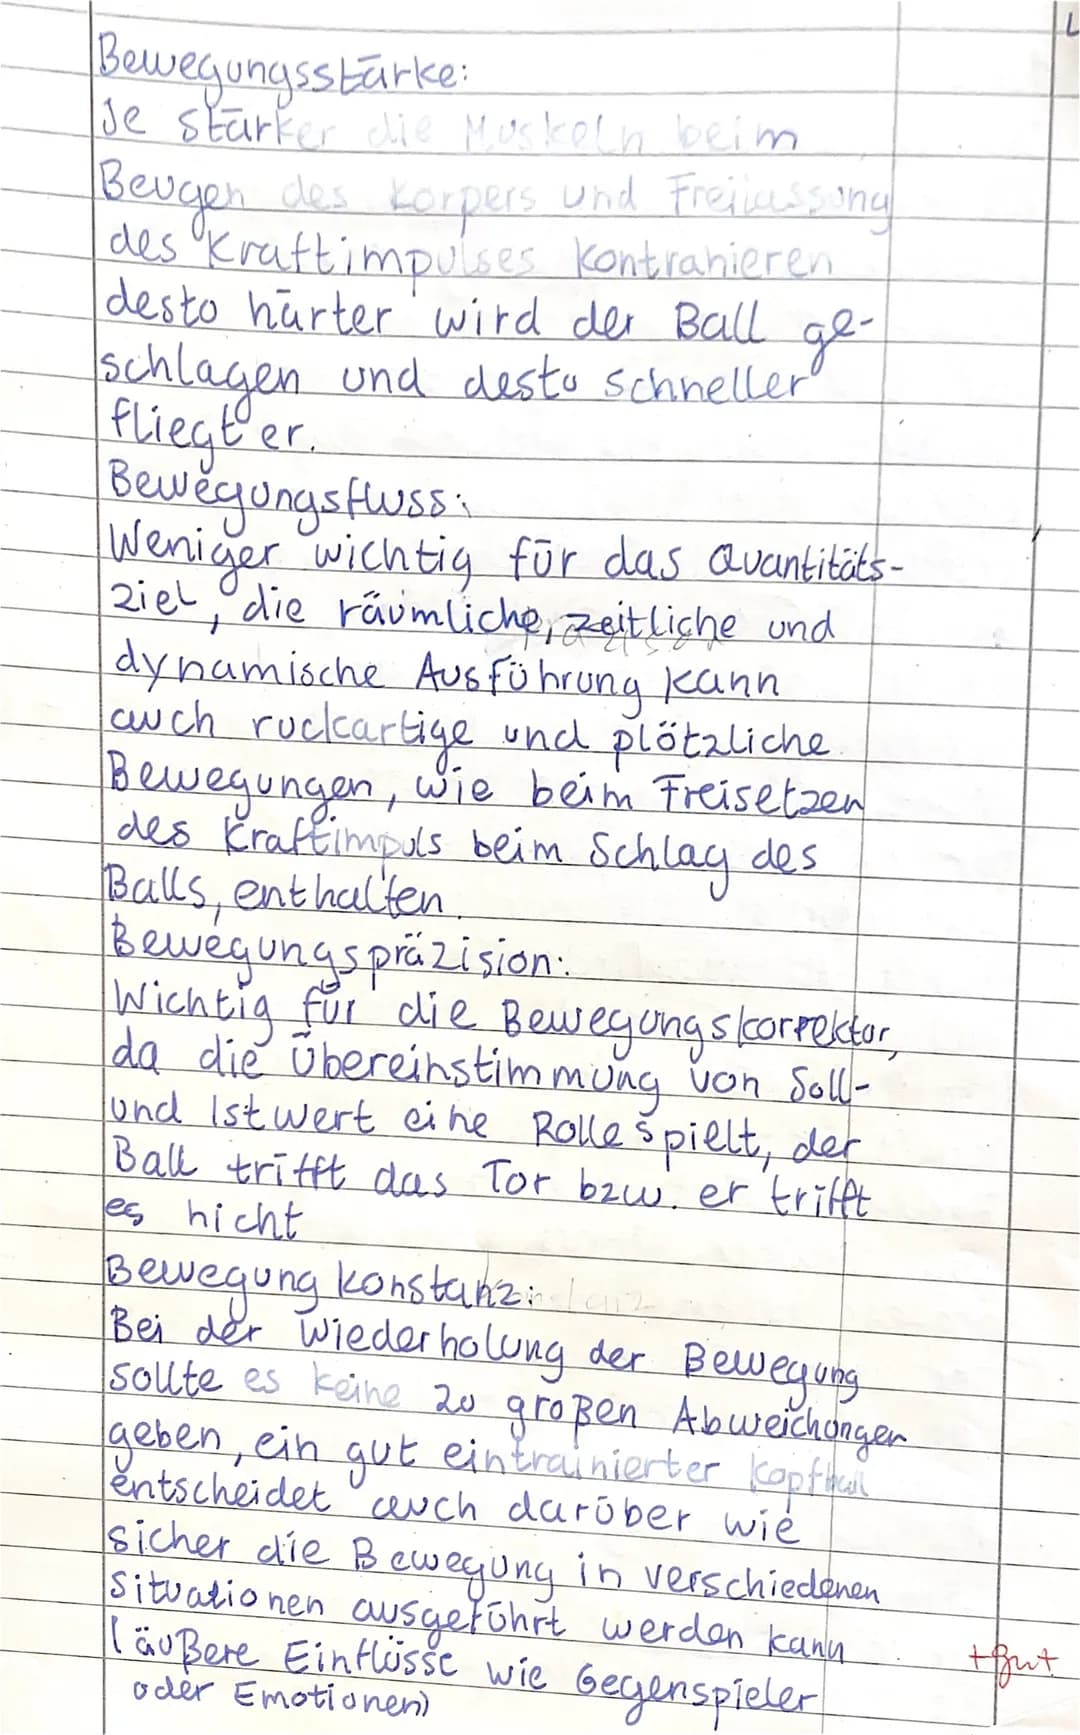 Bewegungsstärke:
Je stärker die Muskeln beim
Beugen des Körpers und Freilassung
des Kraftimpulses kontrahieren
desto härter wird der Ball ge-
schlagen und desto schneller
fliegt er.
Bewegungsfluss:
Weniger wichtig für das Quantitäts-
ziel, die räumliche, zeitliche und
dynamische Ausführung kann
auch ruckartige und plötzliche
Bewegungen, wie beim Freisetzen
des Kraftimpuls beim Schlag des
Balls, enthalten.
Bewegungspräzision:
Wichtig für die Bewegungskorrektur,
da die Übereinstimmung von Soll-
und Istwert eine Rolle spielt, der
Ball trifft das Tor bzw. er trifft
es nicht
Bewegung konstanz:
Bei der Wiederholung der Bewegung
sollte es keine zu großen Abweichungen
geben, ein gut eintrainierter Kopfball
entscheidet auch darüber wie
sicher die Bewegung in verschiedenen
Situationen ausgeführt werden kann
(äußere Einflüsse wie Gegenspieler
oder Emotionen)
+ gut